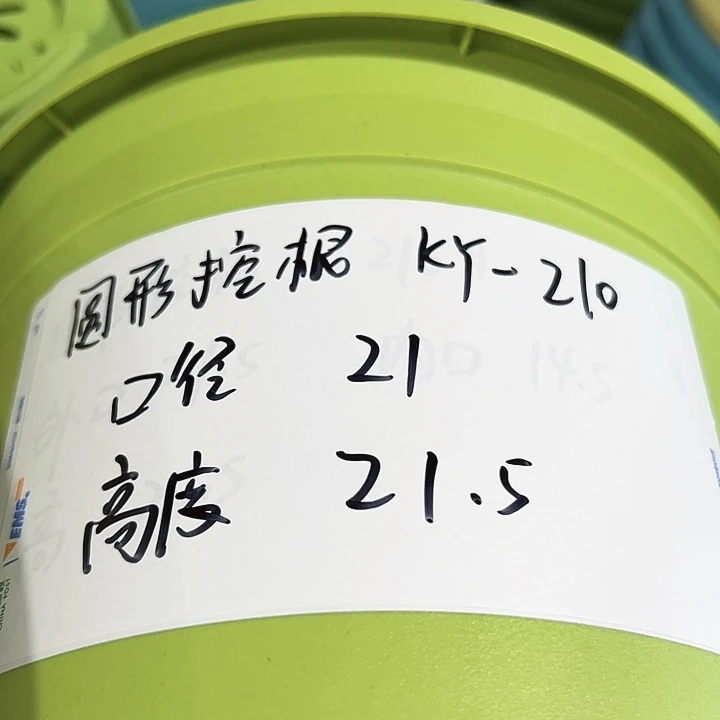 圆形控根 KY-210
口径 21
高度 21.5
EMS
CHINA POST